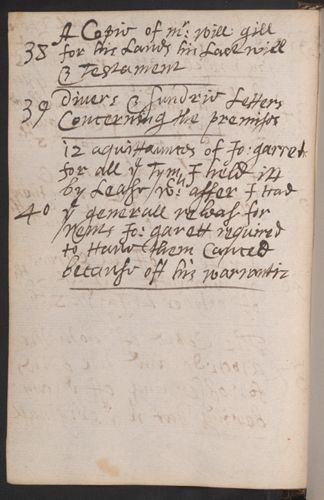 38 A Copie of mr: will gill
for his Lands his Last will
& Testament
39 Divers & sundrie Letters
Concerning the premises
12 aquittaunces of Jo: garret
for all ye Tym I held itt
by Lease / wch affter I had
40 ye generall releas for
Rents Jo: garett required
to Have them Canced
becaus off his warrantie